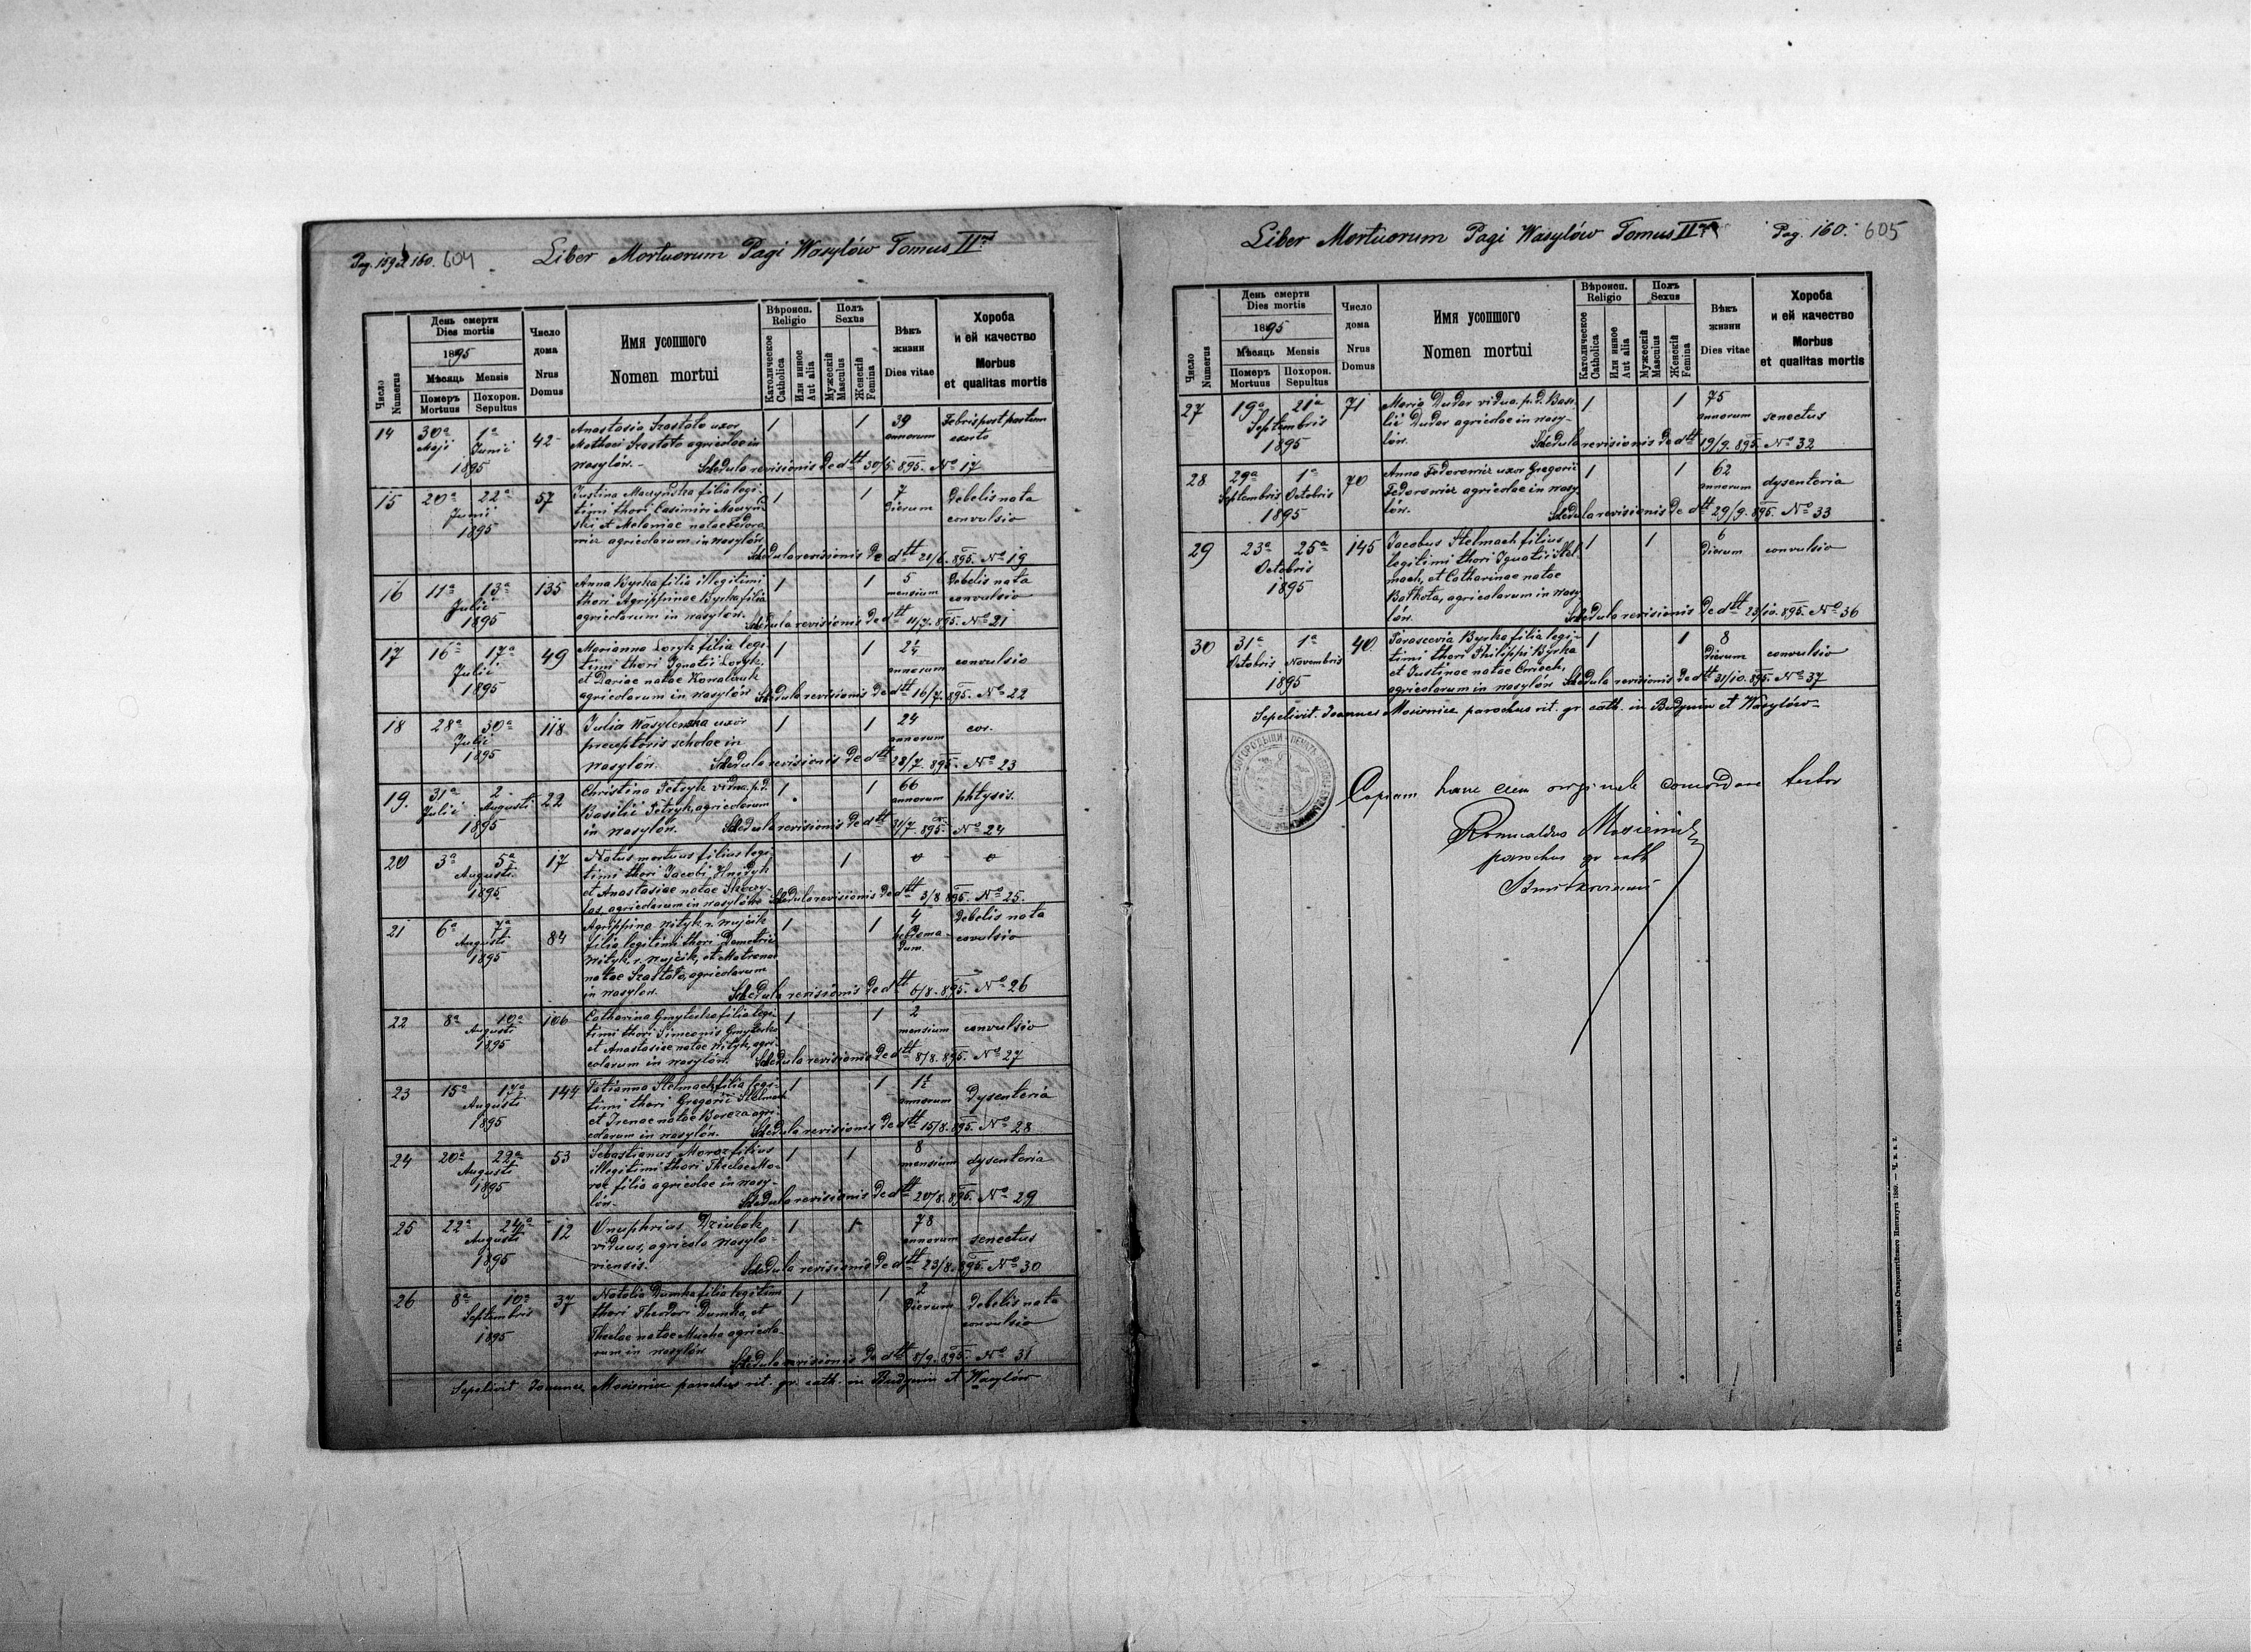 Pag. 159 et 160. 604
Liber Mortuorum Pagi Wasylów Tomus II
Число
Numerus
День смерти
Dies mortis
1895
Мѣсяць Mensis
Померъ Похорон.
Mortuus Sepultus
Число
дома
Nrus
Domus
Имя усопшого
Nomen mortui
Вѣроисп.
Religio
Католическое
Catholica
Или иное
Aut alia
Полъ
Sexus
Мужескій
Masculus
Женскій
Femina
Вѣкъ
жизни
Dies vitae
Хороба
и ей качество
Morbus
et qualitas mortis
14 30a 1a 42 Anastasia Szostało uxor 1 1 39 Febris post partum
Maji Junii Mathaei Szostało agricolae in annorum exorto
1895 Wasylów. Schedula revisionis de dtt 30/5. 895. No 17
15 20a 22a 57 Justina Maczyńska filia legi- 1 1 7 Debelis nata
Junii timi thori Casimiri Maczyń- dierum convulsio
1895 ski et Melaniae natae Fedoro-
wicz agricolarum in Wasylów
Schedula revisionis de dtt 21/6. 895. No 19
16 11a 13a 135 Anna Byrka filia illegitimi 1 1 5 Debelis nata
Julii thori Agrippinae Byrka filia mensium convulsio
1895 agricolarum in Wasylów. Schedula revisionis de dtt 11/7. 895. No 21
17 16a 17a 49 Marianna Loryk filia legi- 1 1 2 1/4
Julii timi thori Ignatii Loryk, annorum convulsio
1895 et Dariae natae Kowalczuk
agricolarum in Wasylów Schedula revisionis de dtt 16/7. 895. No 22
18 28a 30a 118 Julia Wasylenka uxor 1 1 24 cor.
Julii preceptoris scholae in annorum
1895 Wasylów. Schedula revisionis de dtt 28/7. 895. No 23
19. 31a 2 22 Christina Petryk vidua p. d. 1 1 66 phtysis.
Julii Augusti Basilii Petryk, agricolarum annorum
1895 in Wasylów. Schedula revisionis de dtt 31/7. 895. No 24
20 3a 5a 17 Natus mortuus filius legi- 1 0 0
Augusti timi thori Jacobi Hnidyk
1895 et Anastasiae natae
agricolarum in Wasylów Schedula revisionis de dtt 3/8 895. No 25.
21 6a 7a 84 Agrippina Wityk v. Wujcik 1 1 4 Debelis nata
Augusti filia legitimi thori Demetrii hebdoma- convulsio
1895 Wityk v. Wujcik, et Matronae dum.
natae Szostało, agricolarum
in Wasylow. Schedula revisionis de dtt 6/8. 895. No 26
22 8a 10a 106 Catharina Gmyterko filia legi- 1 1 2
Augusti timi thori Simeonis Gmyterko mensium convulsio
1895 et Anastasiae natae Wityk, agri-
colarum in Wasylów. Schedula revisionis de dtt 8/8. 895. No 27
23 15a 17a 144 Tatianna Stelmach filia legi- 1 1 1 1/2
Augusti timi thori Gregorii Stelmach annorum Dysenteria
1895 et Irenae natae Boreza agri-
colarum in Wasylów. Schedula revisionis de dtt 15/8. 895. No 28
24 20a 22a 53 Sebastianus Moroz filius 1 1 8
Augusti illegitimi thori Theclae Mo- mensium dysenteria
1895 roz filia agricolae in Wasy-
lów. Schedula revisionis de dtt 20/8. 895. No 29
25 22a 24a 12 Onuphrius Dziubak 1 1 78
Augusti viduus, agricola Wasylo- annorum senectus
1895 viensis. Schedula revisionis de dtt 23/8. 895. No 30
26 8a 10a 37 Natalia Dumka filia legitimi 1 1 2
Septembris thori Theodori Dumka, et dierum Debelis nata
1895 Theclae natae Mucha agricola- convulsio
rum in Wasylów Schedula revisionis de dtt 8/9. 895. No 31
Sepelivit Joannes Mosiewicz parochus rit. gr. cath. in Budynin et Wasylów
Liber Mortuorum Pagi Wasylów Tomus II
Pag. 160. 605
Число
Numerus
День смерти
Dies mortis
1895
Мѣсяць Mensis
Померъ Похорон.
Mortuus Sepultus
Число
дома
Nrus
Domus
Имя усопшого
Nomen mortui
Вѣроисп.
Religio
Католическое
Catholica
Или иное
Aut alia
Полъ
Sexus
Мужескій
Masculus
Женскій
Femina
Вѣкъ
жизни
Dies vitae
Хороба
и ей качество
Morbus
et qualitas mortis
27 19a 21a 71 Maria Dudar vidua p. d. Basi- 1 1 75
Septembris lii Dudar agricolae in Wasy- annorum senectus
1895 lów. Schedula revisionis de dtt 19/9. 895. No 32
28 29a 1a 70 Anna Fedorowicz uxor Gregorii 1 1 62
Septembris Octobris Fedorowicz agricolae in Wasy- annorum dysenteria
1895 lów. Schedula revisionis de dtt 29/9. 895. No 33
29 23a 25a 145 Jacobus Stelmach filius 1 1 6
Octobris legitimi thori Ignatii Stel- dierum convulsio
1895 mach, et Catharinae natae
Bałkota, agricolarum in Wasy-
lów. Schedula revisionis de dtt 23/10. 895. No 36
30 31a 1a 40 Parascevia Byrka filia legi- 1 1 8
Octobris Novembris timi thori Philippi Byrka dierum convulsio
1895 et Justinae natae
agricolarum in Wasylów Schedula revisionis de dtt 31/10. 895. No 37
Sepelivit Joannes Mosiewicz parochus rit. gr. cath. in Budynin et Wasylów
Copiam hanc cum originale concordare testor
Romualdus
parochus gr cath
Изъ типографіи Ставропигійского Института 1889. — Ч. в. к. з.